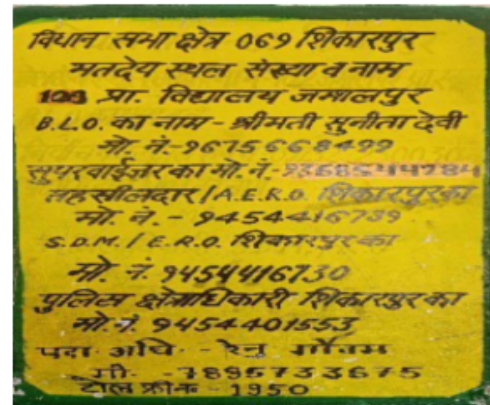 विधान सभा क्षेत्र 069 शिकारपुर
मतदेय स्थल संख्या व नाम
प्रा. विद्यालय जमालपुर
B.L.O. का नाम - श्रीमती सुनीता देवी
मो. नं.- 9675668499
सुपरवाईजर का मो. नं.-
तहसीलदार / A.E.R.O. शिकारपुर का
मो. नं. - 9454416789
S.D.M. / E.R.O. शिकारपुर का
मो. नं. 9454416730
पुलिस क्षेत्राधिकारी शिकारपुर का
मो. नं. 9454401553
पदा. अधि. - रेनु गौतम
मो. - 7895733675
टोल फ्री नं - 1950